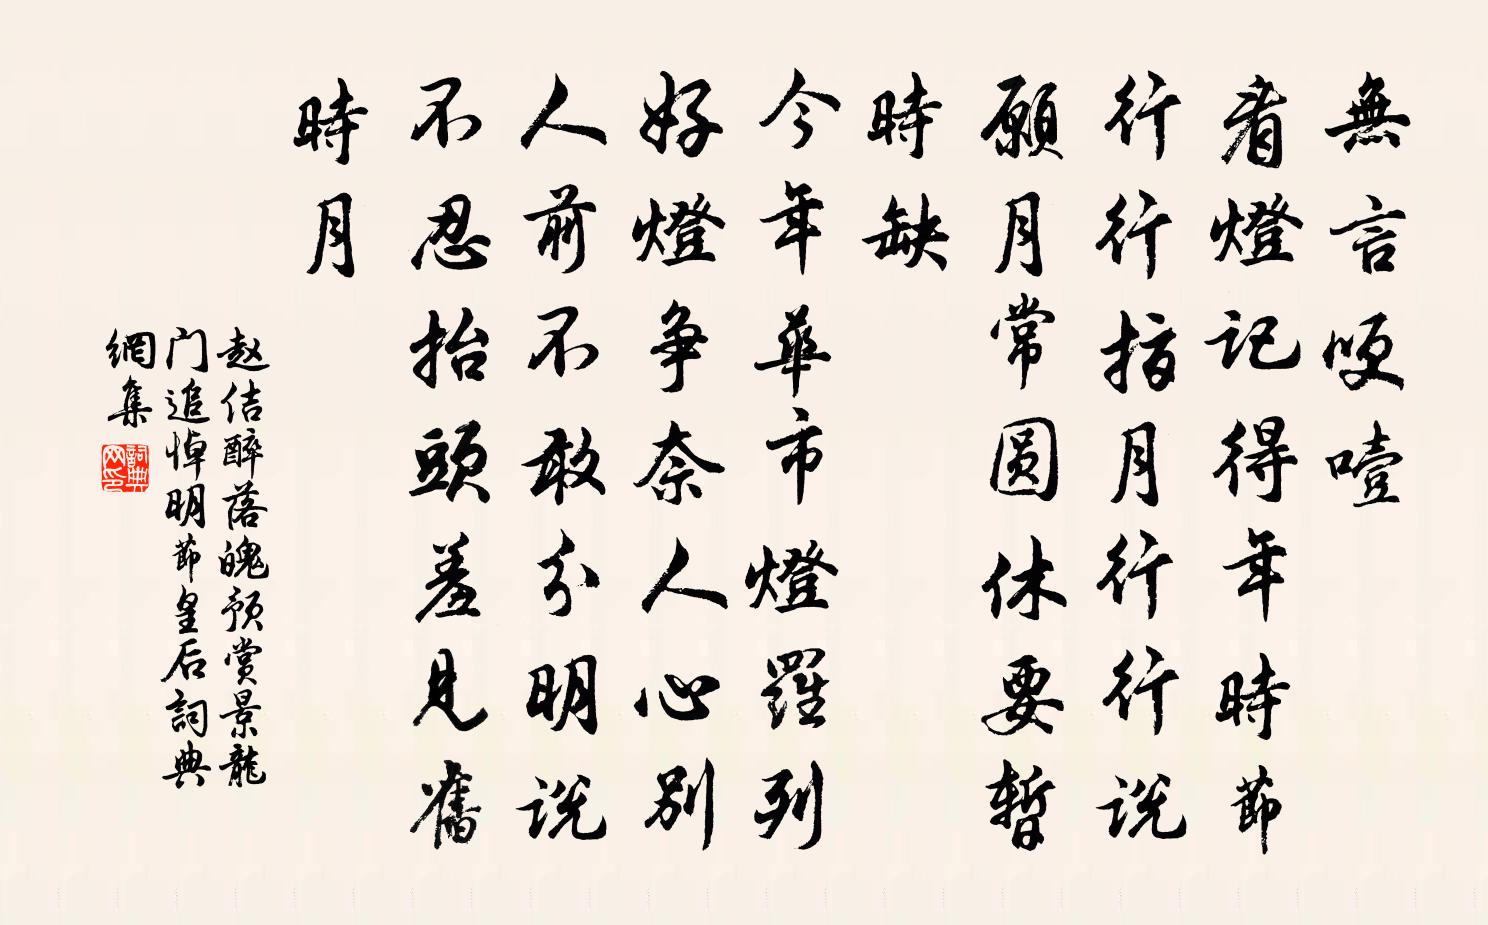 無言哽噎
看燈記得年時節
行行指月行行說
願月常圆休要暫
時缺
今年華市燈羅列
好燈爭奈人心別
人前不敢分明說
不忍抬頭羞見舊
時月
赵佶醉落魄預賞景龍
门追悼明節皇后詞典
網集
詞典网印